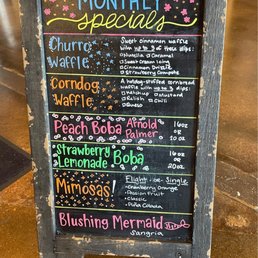 MONTHLY
specials
Churro
Waffle
Sweet cinnamon waffle
with up to 3 of these dips:
Nutella Caramel
Sweet Cream Icing
Cinnamon Drizzle
Strawberry Compote
Corndog
Waffle
A hotdog-stuffed cornbread
waffle with up to 3 dips:
Ketchup Mustard
Relish Chili
Queso
Peach Boba Arnold
Palmer
16oz
OR
20oz
Strawberry
Lemonade Boba
16oz
OR
20oz
Mimosas!
Flight -or- Single
Cranberry Orange
Passion Fruit
Classic
Piña Colada
Blushing Mermaid
Sangria